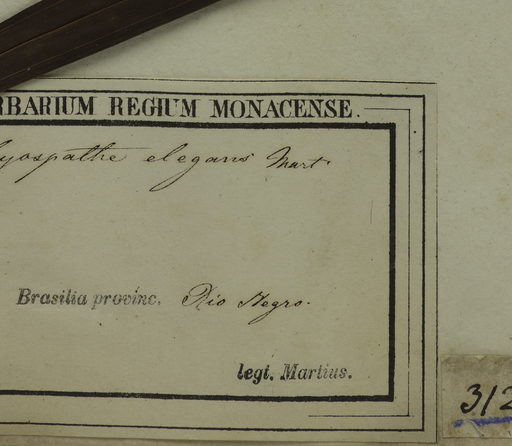 RBARIUM REGIUM MONACENSE.
yospathe elegans Mart.
Brasilia provinc. Rio Negro.
legi. Martius.
312